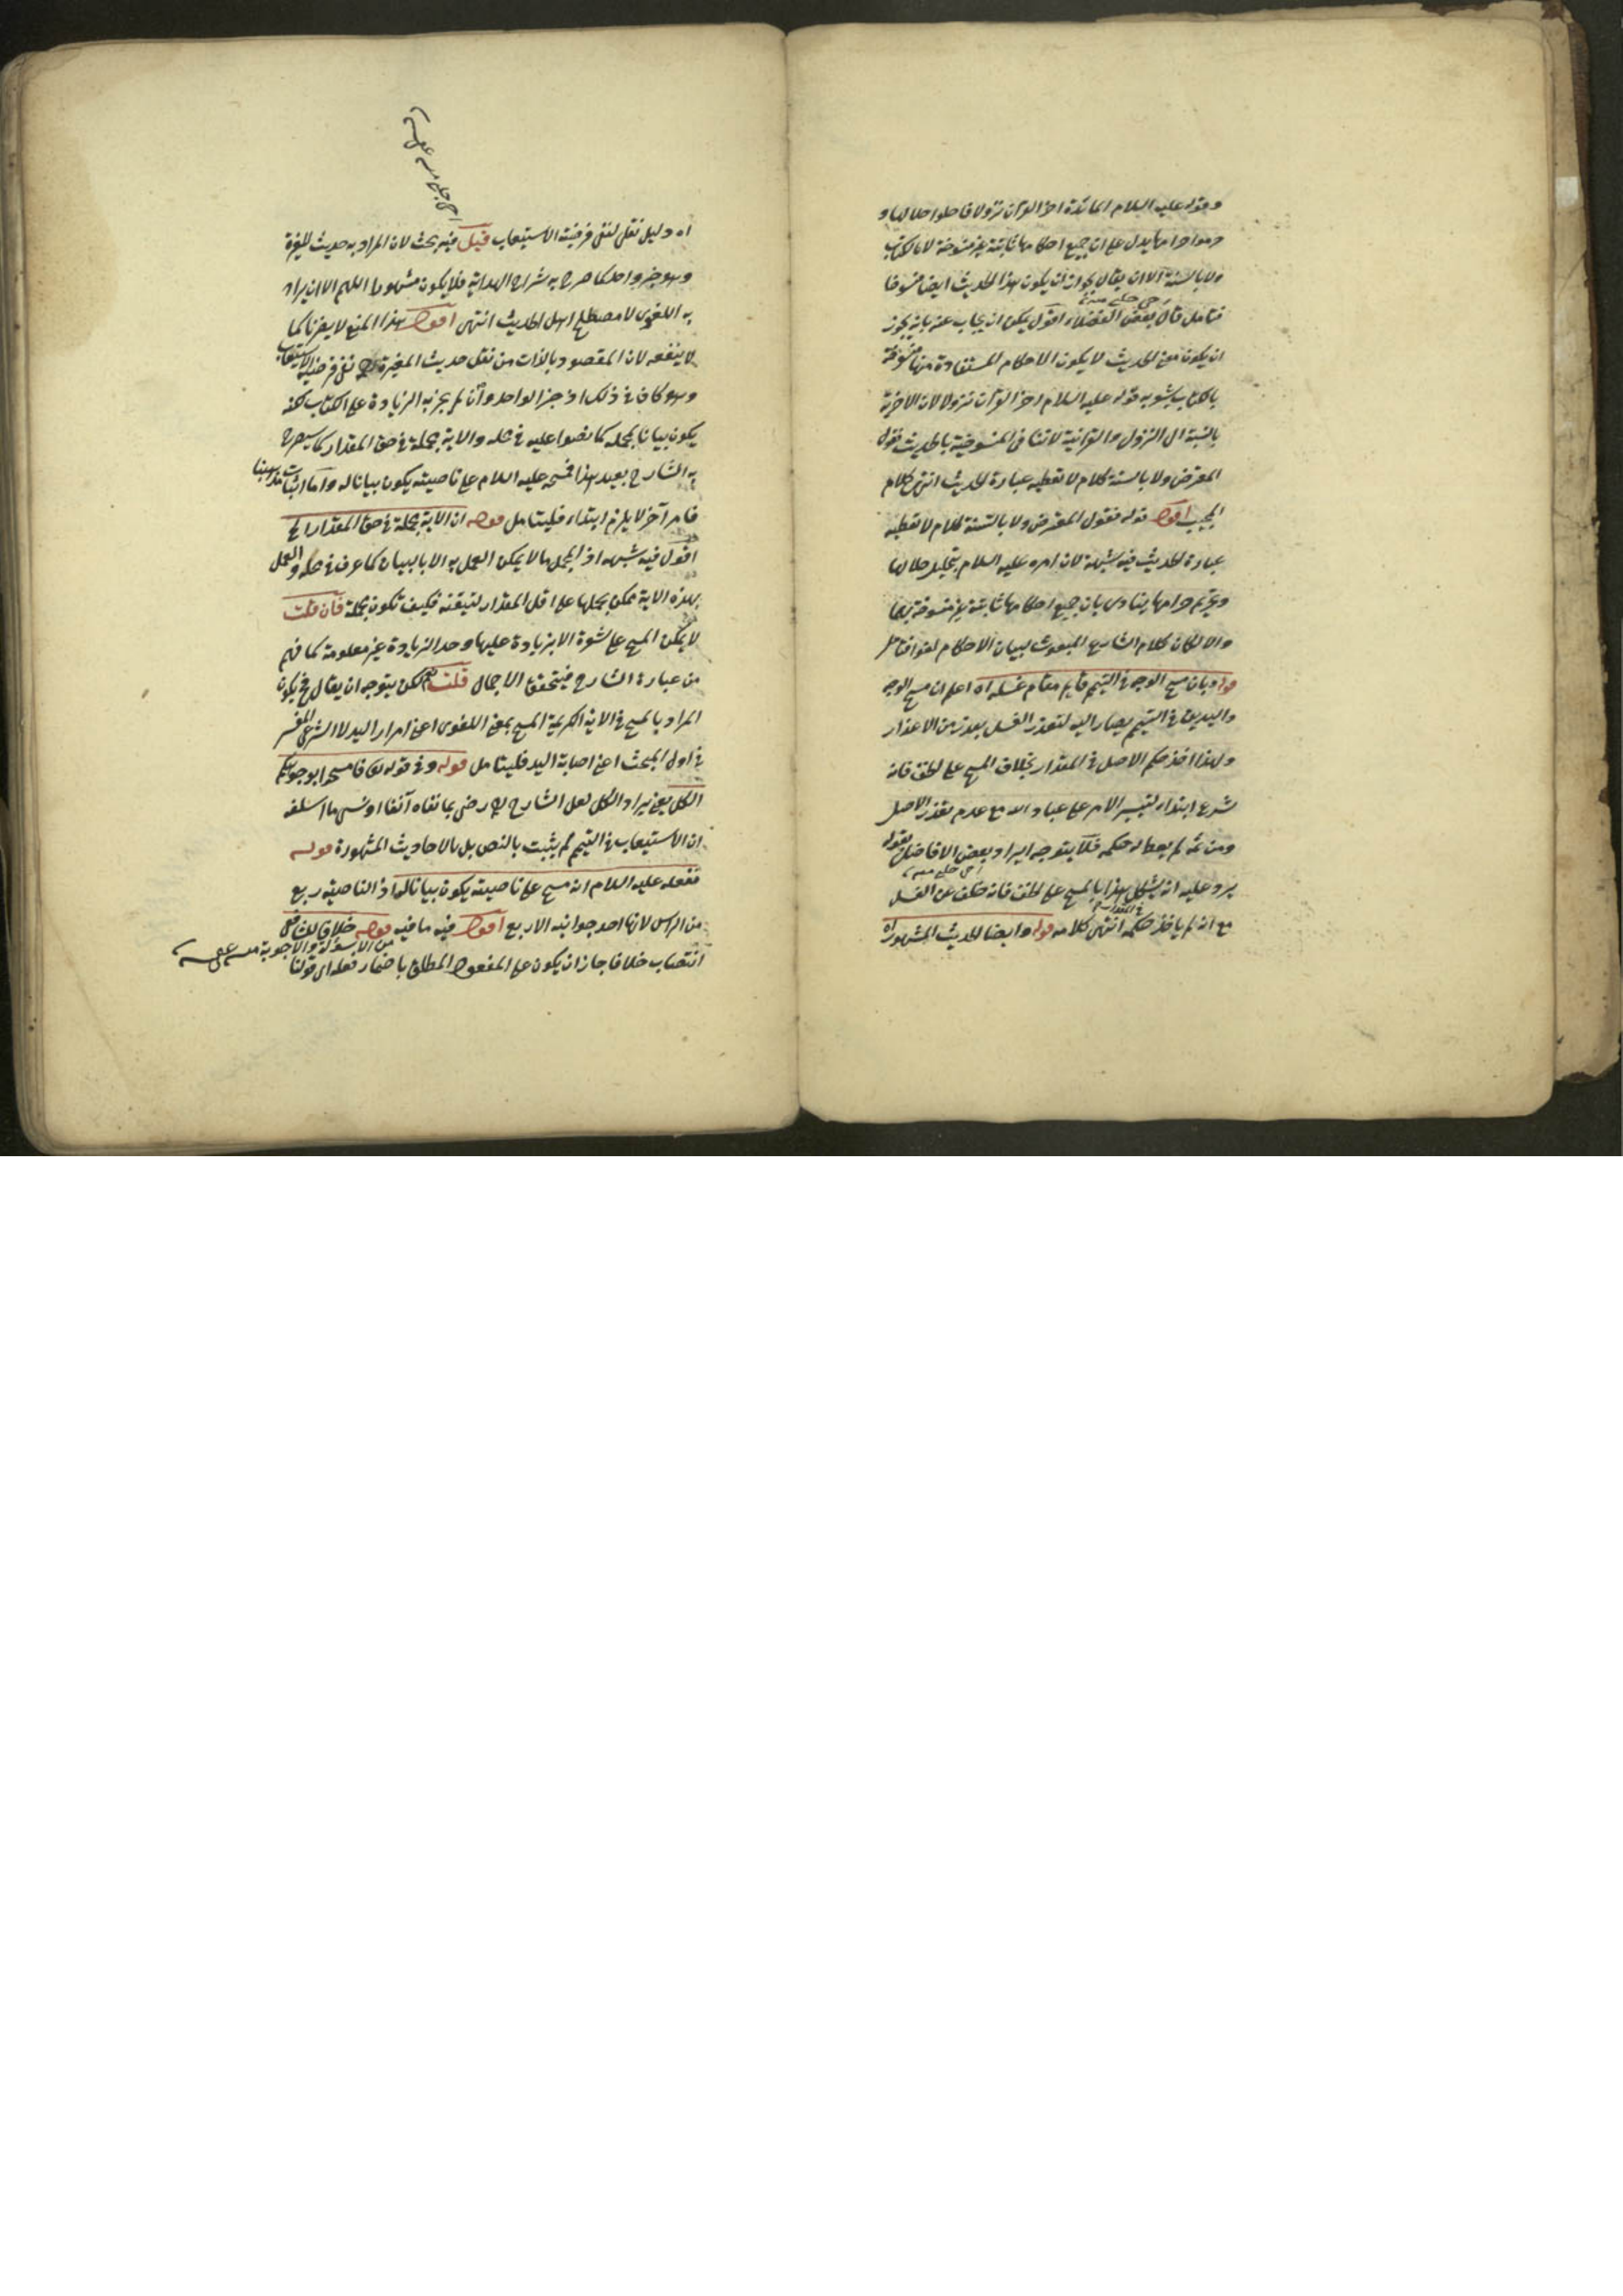 وقوله عليه السلام المائدة اخر القرآن نزولا فاحلوا حلالها و
حرموا حرامها يدل على ان جميع احكامها ثابتة غير منسوخة لا بالكتاب
ولا بالسنة الا ان يقال يجوز ان يكون هذا الحديث ايضا منسوخا
فتامل قال بعض الفضلاء اقول يمكن ان يجاب عنه بانه يجوز
اى حسن جلبى
ان يكون معنى الحديث لا يكون الاحكام المستفادة منها منسوخة
بالكتاب بشوبه قوله عليه السلام اخر القرآن نزولا لان الاخرية
بالنسبة الى النزول والقرانية لا تنافى المنسوخية بالحديث فقول
المعترض ولا بالسنة كلام لا تعطيه عبارة الحديث انتهى كلام
المجيب اقول قوله فقول المعترض ولا بالسنة كلام لا تعطيه
عبارة الحديث فيه شبهة لان امره عليه السلام بتحليل حلالها
وتحريم حرامها ينادى بان جميع احكامها ثابتة غير منسوخة بهما
والا لكان كلام الشارع المبعوث لبيان الاحكام لغوا فتامل
قوله وبان مسح الوجه فى التيمم قايم مقام غسله اه اعلم ان مسح الوجه
واليدين فى التيمم يصار اليه لتعذر الغسل بعذر من الاعذار
ولهذا اخذ حكم الاصل فى المقدار بخلاف المسح على الخف فانه
شرع ابتداء لتيسير الامر على عباد الله مع عدم تعذر الاصل
ومن ثمه لم يعط له حكمه فلا يتوجه ايراد بعض الافاضل بقوله
يرد عليه انه يشكل هذا بالمسح على الخف فانه خلف عن الغسل
فى المقدار
مع انه لم ياخذ حكمه انتهى كلامه قوله وايضا الحديث المشهور اه
اه دليل نقلى لنفى فرضية الاستيعاب قيل فيه بحث لان المراد به حديث المغيرة
وهو خبر واحد كما صرح به شراح الهداية فلا يكون مشهورا اللهم الا ان يراد
به اللغوى لا مصطلح اهل الحديث انتهى اقول هذا المنع لا يضرنا كما
لا ينفعه لان المقصود بالذات من نقل حديث المغيرة نفى فرضية الاستيعاب
وهو كاف فى ذلك اذ خبر الواحد وان لم يجز به الزيادة على الكتاب لكنه
يكون بيانا لمجمله كما نصوا عليه فى محله والاية مجملة فى حق المقدار كما سيصرح
به الشارح بعيد هذا فمسحه عليه السلام على ناصيته يكون بيانا له واما اثبات مذهبنا
فامر آخر لا يلزم ابتداء فليتامل قوله ان الاية مجملة فى حق المقدار الخ
اقول فيه شبهة اذ المجمل ما لا يمكن العمل به الا بالبيان كما عرف فى محله والعمل
بهذه الاية ممكن بحملها على اقل المقدار لتيقنه فكيف تكون مجملة فان قلت
لا يمكن المسح على شعرة الا بزيادة عليها وحد الزيادة غير معلومة كما فهم
من عبارة الشارح فيتحقق الاجمال قلت نعم لكن يتوجه ان يقال لم يكون
المراد بالمسح فى الاية الكريمة المسح بمعنى اللغوى اعنى امرار اليد لا الشرعى المفسر
فى اول المبحث اعنى اصابة اليد فليتامل قوله وفى قوله تعالى فامسحوا بوجوهكم
الكل يعنى يراد الكل لعل الشارح رح رضى بما نفاه آنفا او نسى ما اسلفه
ان الاستيعاب فى التيمم لم يثبت بالنص بل بالاحاديث المشهورة قوله
ففعله عليه السلام انه مسح على ناصيته يكون بيانا له اذ الناصية ربع
من الراس لانها احد جوانبه الاربع اقول فيه ما فيه قوله خلافا للشافعى
من الاسولة والاجوبة
انتصاب خلافا جاز ان يكون على المفعول المطلق باضمار فعله اى قولنا